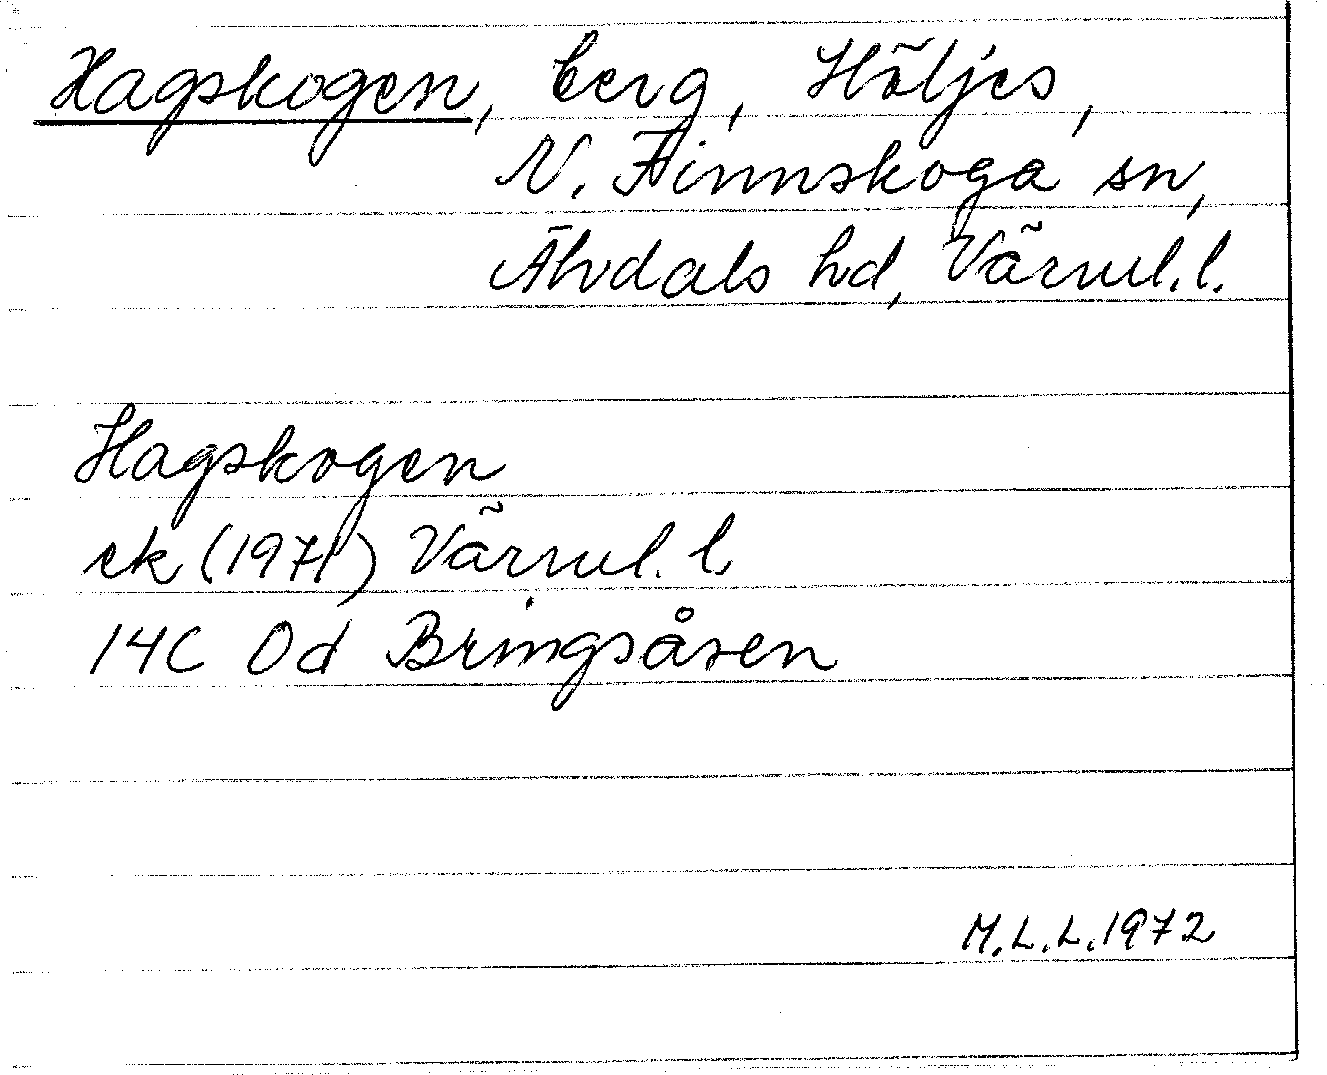 Hagskogen, berg, Höljes,
N. Finnskoga sn,
Älvdals hd, Värml. l.
Hagskogen
ek (1971) Värml. l
14C 0d Bringsåsen
M.L.L. 1972